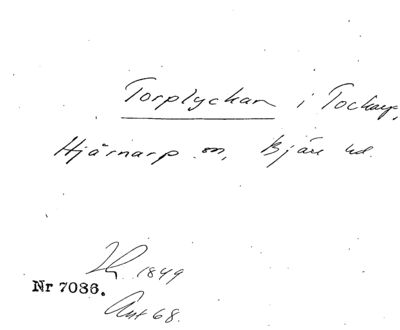 Torplyckan i Tockarp,
Hjärnarp sn, Bjäre hd.
1849
Nr 7036.
Ant 68.